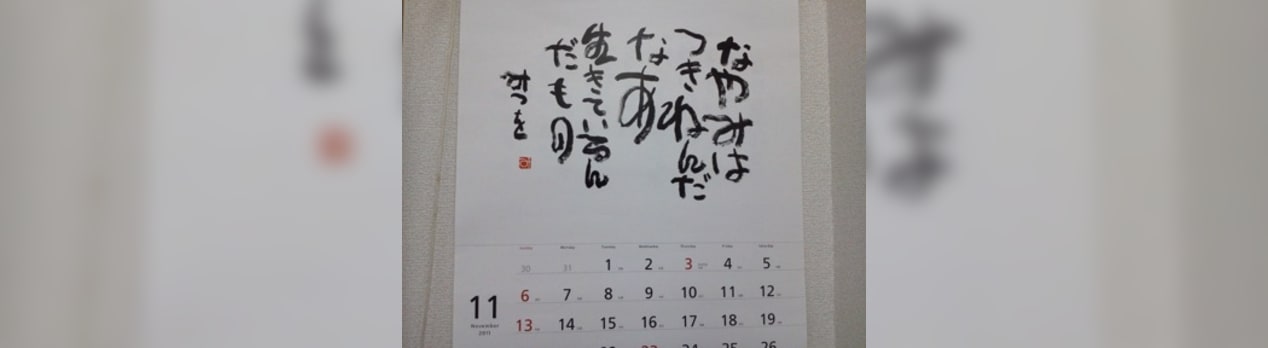 なやみは
つきねんだ
なあ
生きているん
だもの
みつを
Sunday Monday Tuesday Wednesday Thursday Friday Saturday
30 31 1 2 3 4 5
6 7 8 9 10 11 12
13 14 15 16 17 18 19
11
November
2011
23 24 25 26